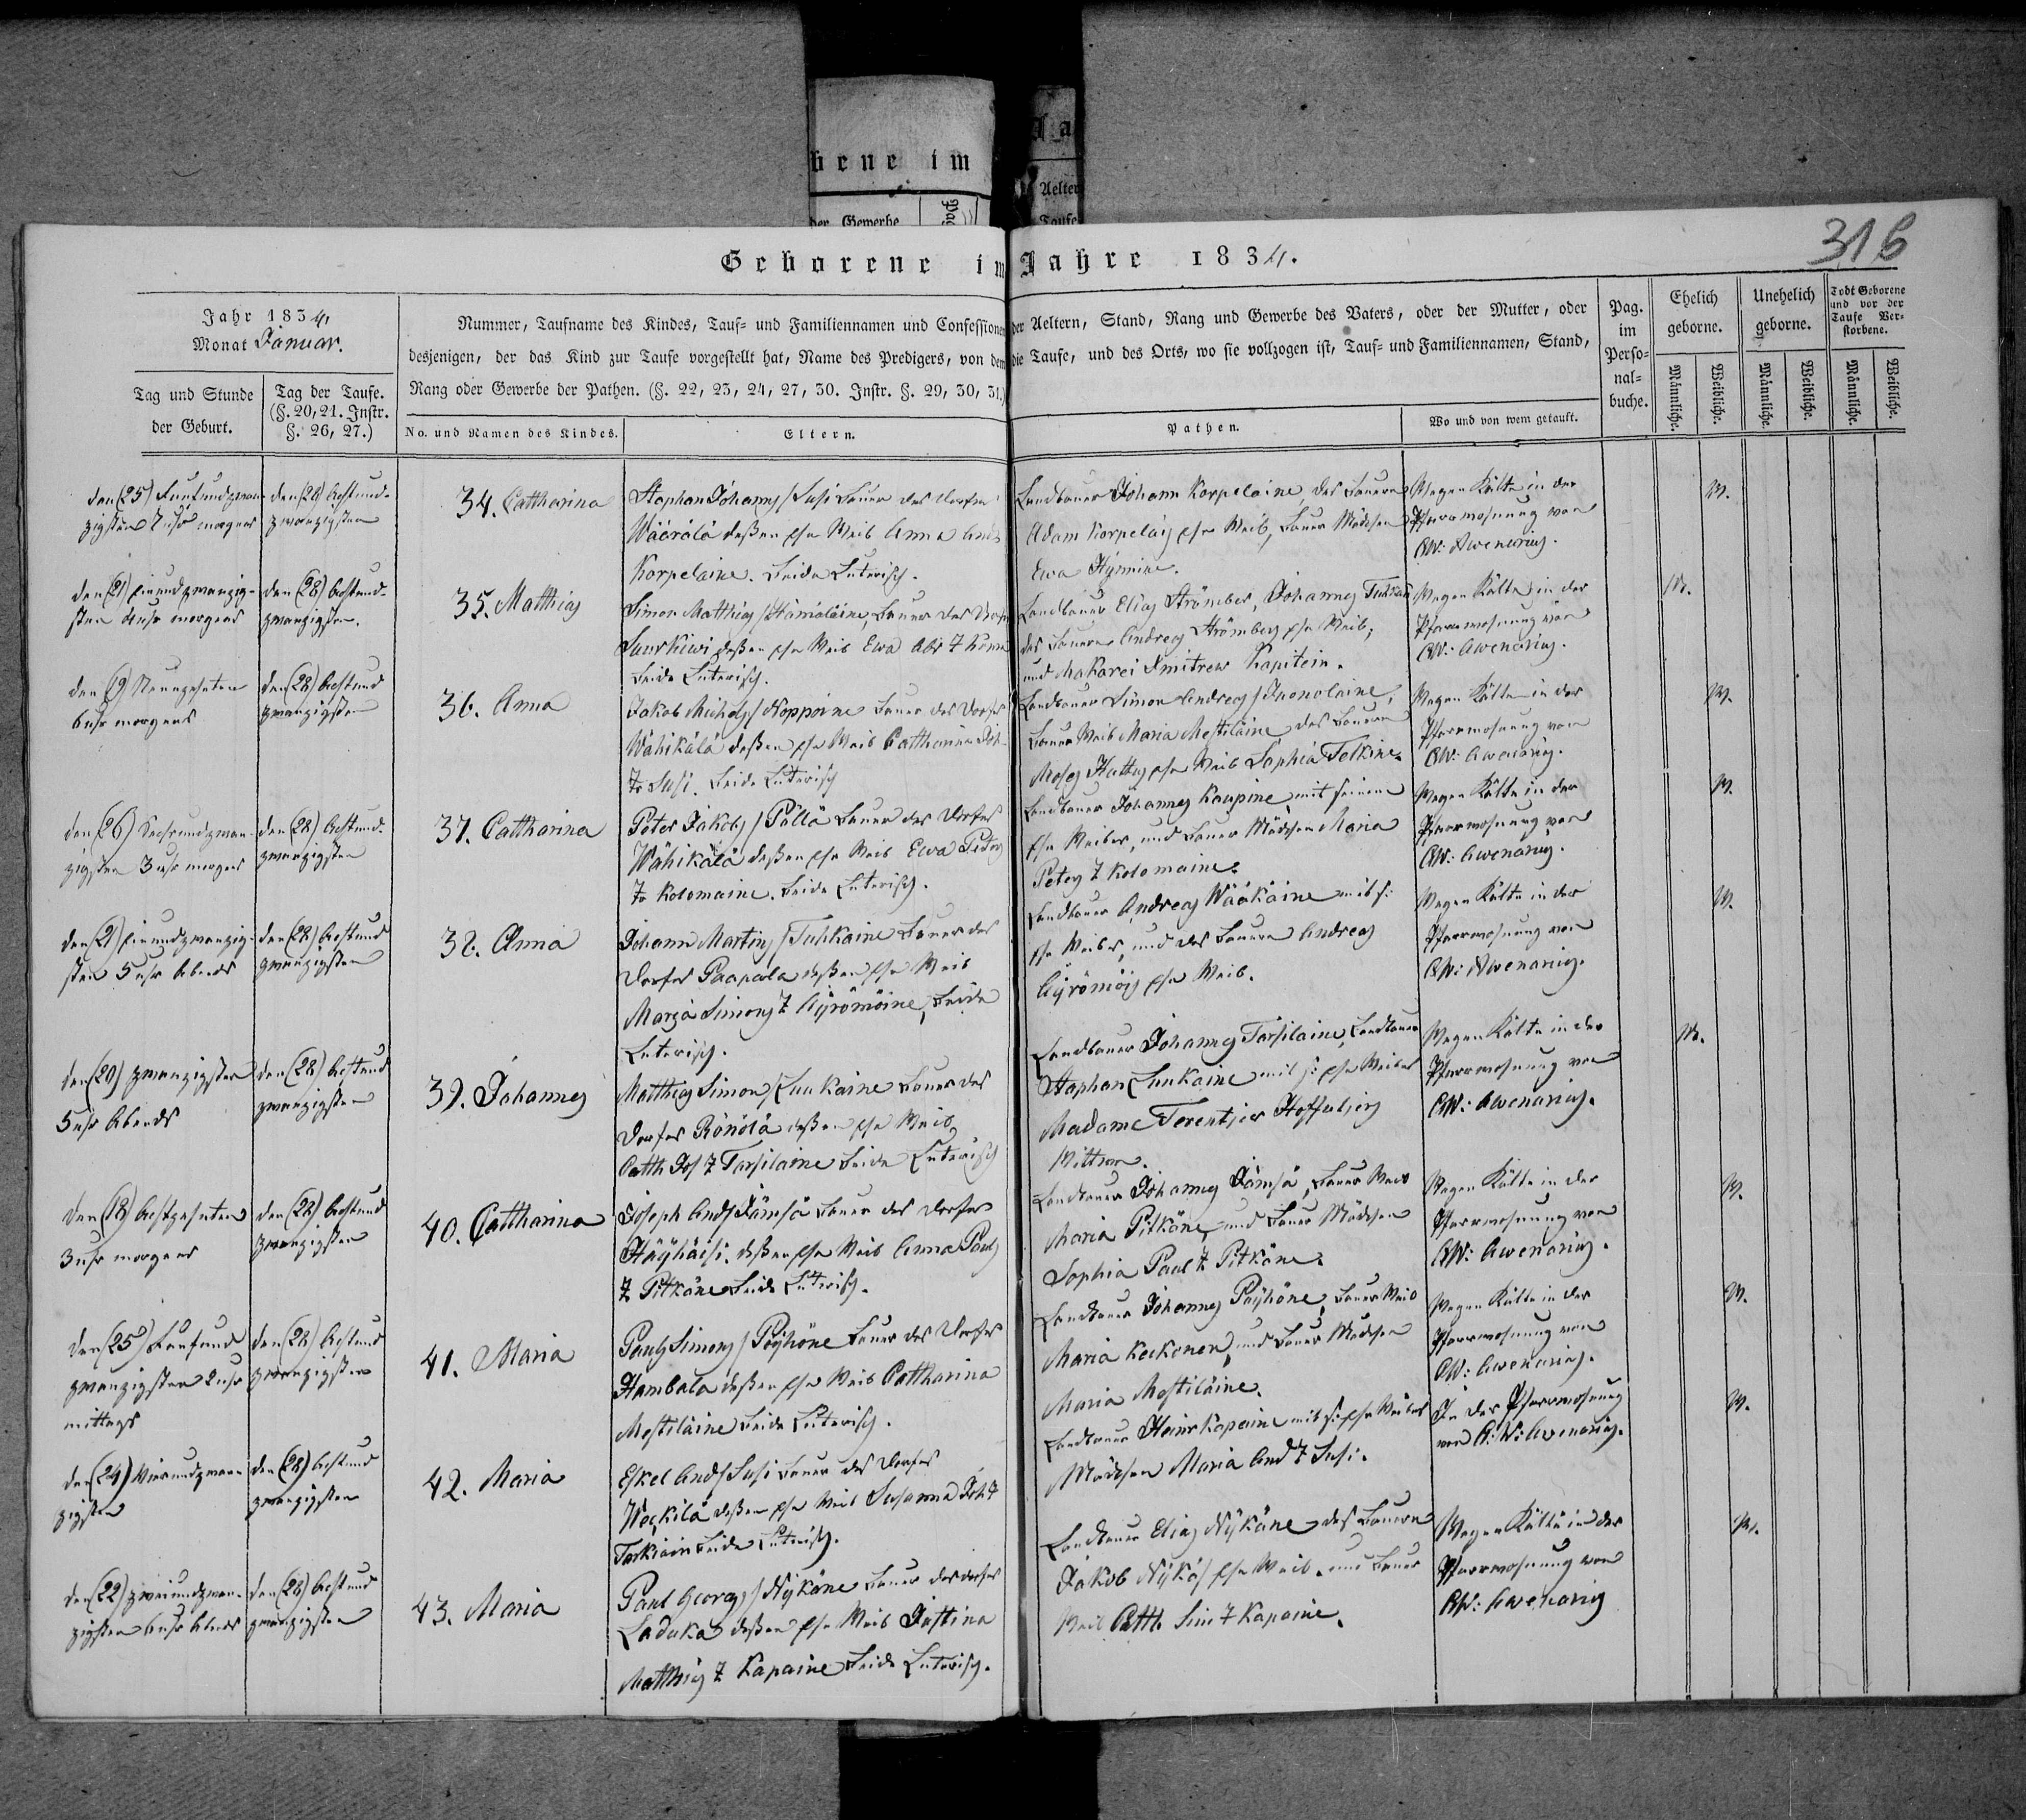 bene im
Aelter
der Gewerbe
Taufe
Geborene im Jahre 1834.
316
Jahr 1834,
Monat Januar.
Tag und Stunde
der Geburt.
Tag der Taufe.
(§. 20, 21. Instr.
§. 26, 27.)
Nummer, Taufname des Kindes, Tauf- und Familiennamen und Confessionen der Aeltern, Stand, Rang und Gewerbe des Vaters, oder der Mutter, oder
desjenigen, der das Kind zur Taufe vorgestellt hat, Name des Predigers, von dem die Taufe, und des Orts, wo sie vollzogen ist, Tauf- und Familiennamen, Stand,
Rang oder Gewerbe der Pathen. (§. 22, 23, 24, 27, 30. Instr. §. 29, 30, 31.)
No. und Namen des Kindes.
Eltern.
Pathen.
Wo und von wem getauft.
Pag.
im
Perso-
nal-
buche.
Ehelich
geborne.
Unehelich
geborne.
Todt Geborene
und vor der
Taufe Ver-
storbene.
Männliche.
Weibliche.
Männliche.
Weibliche.
Männliche.
Weibliche.
den (25) Fünfundzwan-
zigsten 7 uhr morgens
den (28) Achtund-
zwanzigsten
34. Catharina
Stephan Johannes/Susi Bauer des Dorfes
Wäärälä deßen Ehe Weib Anna Ands
Korpelaine. Beide Luterisch.
Landbauer Johann Korpelaine, des Bauern
Adam Korpelais Ehe Weib, Bauer Mädchen
Ewa Hÿnnine.
Wegen Kälte in der
Pfarrwohnung von
AW: Awenarius.
W.
den (21) Einundzwanzig-
sten 4 uhr morgens
den (28) Achtund-
zwanzigsten.
35. Matthias
Simon Matthias/Hämäläine, Bauer des Dorfes
Saurkiwi deßen Ehe Weib Ewa
Beide Luterisch.
Landbauer Elias Strömber, Johannes
des Bauern Andreas Strömberg Ehe Weib,
und Makarei Dmitrew Kapitein.
Wegen Kälte in der
Pfarrwohnung von
AW: Awenarius.
M.
den (19) Neunzehnten
6 uhr morgens
den (28) Achtund
zwanzigsten
36. Anna
Jakob Michels/Noppoine Bauer des Dorfes
Wähikälä deßen Ehe Weib Catharina Joh-
Tr Susi. Beide Luterisch
Landbauer Simon Andreas/Inonolaine,
Bauer Weib Maria Mestiläine, des Bauern
Moses Hattus Ehe Weib Sophia Tolkine.
Wegen Kälte in der
Pfarrwohnung von
AW: Awenarius.
W.
den (26) Sechsundzwan-
zigsten 3 uhr morgens
den (28) Achtund-
zwanzigsten
37. Catharina
Peter Jakobs/Pöllä Bauer des Dorfes
Wähikälä deßen Ehe Weib Ewa Peters
Tr Kolomaine. Beide Luterisch.
Landbauer Johannes Kaupine mit seinem
Ehe Weibe, und Bauer Mädchen Maria
Peters T Kolomaine.
Wegen Kälte in der
Pfarrwohnung von
AW: Awenarius.
W.
den (21) Einundzwanzig-
sten 5 uhr Abends
den (28) Achtund
zwanzigsten
38. Anna
Johann Martins/Tuhkaine Bauer des
Dorfes Paapala deßen Ehe Weib
Marja Simons T Äÿrömöine, Beide
Luterisch.
Landbauer Andreas Wääkäine mit s:
Ehe Weibe, und des Bauern Andreas
Äÿrömöis Ehe Weib.
Wegen Kälte in der
Pfarrwohnung von
AW: Awenarius.
W.
den (20) Zwanzigsten
5 uhr Abends
den (28) Achtund
zwanzigsten
39. Johannes
Matthias Simon/Luukaine Bauer des
Dorfes Rönölä deßen Ehe Weib
Cath Jos T Tassilaine Beide Luterisch
Landbauer Johannes Tassilaine, Landbauer
Stephan Luukaine mit s: Ehe Weibe
Madame Terentjew
Wittwe.
Wegen Kälte in der
Pfarrwohnung von
AW: Awenarius.
M.
den (18) Achtzehnten
3 uhr morgens
den (28) Achtund
zwanzigsten
40. Catharina
Joseph Ands Jämsä Bauer des Dorfes
Häÿhäesi. deßen Ehe Weib Anna Pauls
T. Pitkäne Beide Luterisch.
Landbauer Johannes Jämsä, Bauer Weib
Maria Pitkäne, und Bauer Mädchen
Sophia Paul T. Pitkäne.
Wegen Kälte in der
Pfarrwohnung von
AW: Awenarius.
W.
den (25) Fünfund
zwanzigsten 2 uhr
mittags
den (28) Achtund
zwanzigsten
41. Maria
Pauls Simons/Pöÿhöne Bauer des Dorfes
Hambala deßen Ehe Weib Catharina
Mestiläine Beide Luterisch.
Landbauer Johannes Pöÿhöne, Bauer Weib
Maria Keckonen, und Bauer Mädchen
Maria Mestiläine.
Wegen Kälte in der
Pfarrwohnung von
AW: Awenarius.
W.
den (24) Vierundzwan-
zigsten
den (28) Achtund
zwanzigsten
42. Maria
Eskel Ands Susi Bauer des Dorfes
Weckilä deßen Ehe Weib Susanna Joh T
Tarkiain Beide Luterisch.
Landbauer Heinr Kapaine mit s: Ehe Weibe
Mädchen Maria And T Susi.
In der Pfarrwohnung
von A: W: Awenarius.
W.
den (22) Zweiundzwan-
zigsten 6 uhr Abends
den (28) Achtund
zwanzigsten
43. Maria
Paul Georgs/Nÿkäne Bauer des Dorfes
Laduka deßen Ehe Weib Justina
Matthias T Kapaine Beide Luterisch.
Landbauer Elias Nÿkäne des Bauern
Jakob Nÿkäs Ehe Weib, und Bauer
Weib Cath Sim T Kapaine.
Wegen Kälte in der
Pfarrwohnung von
AW: Awenarius
W.